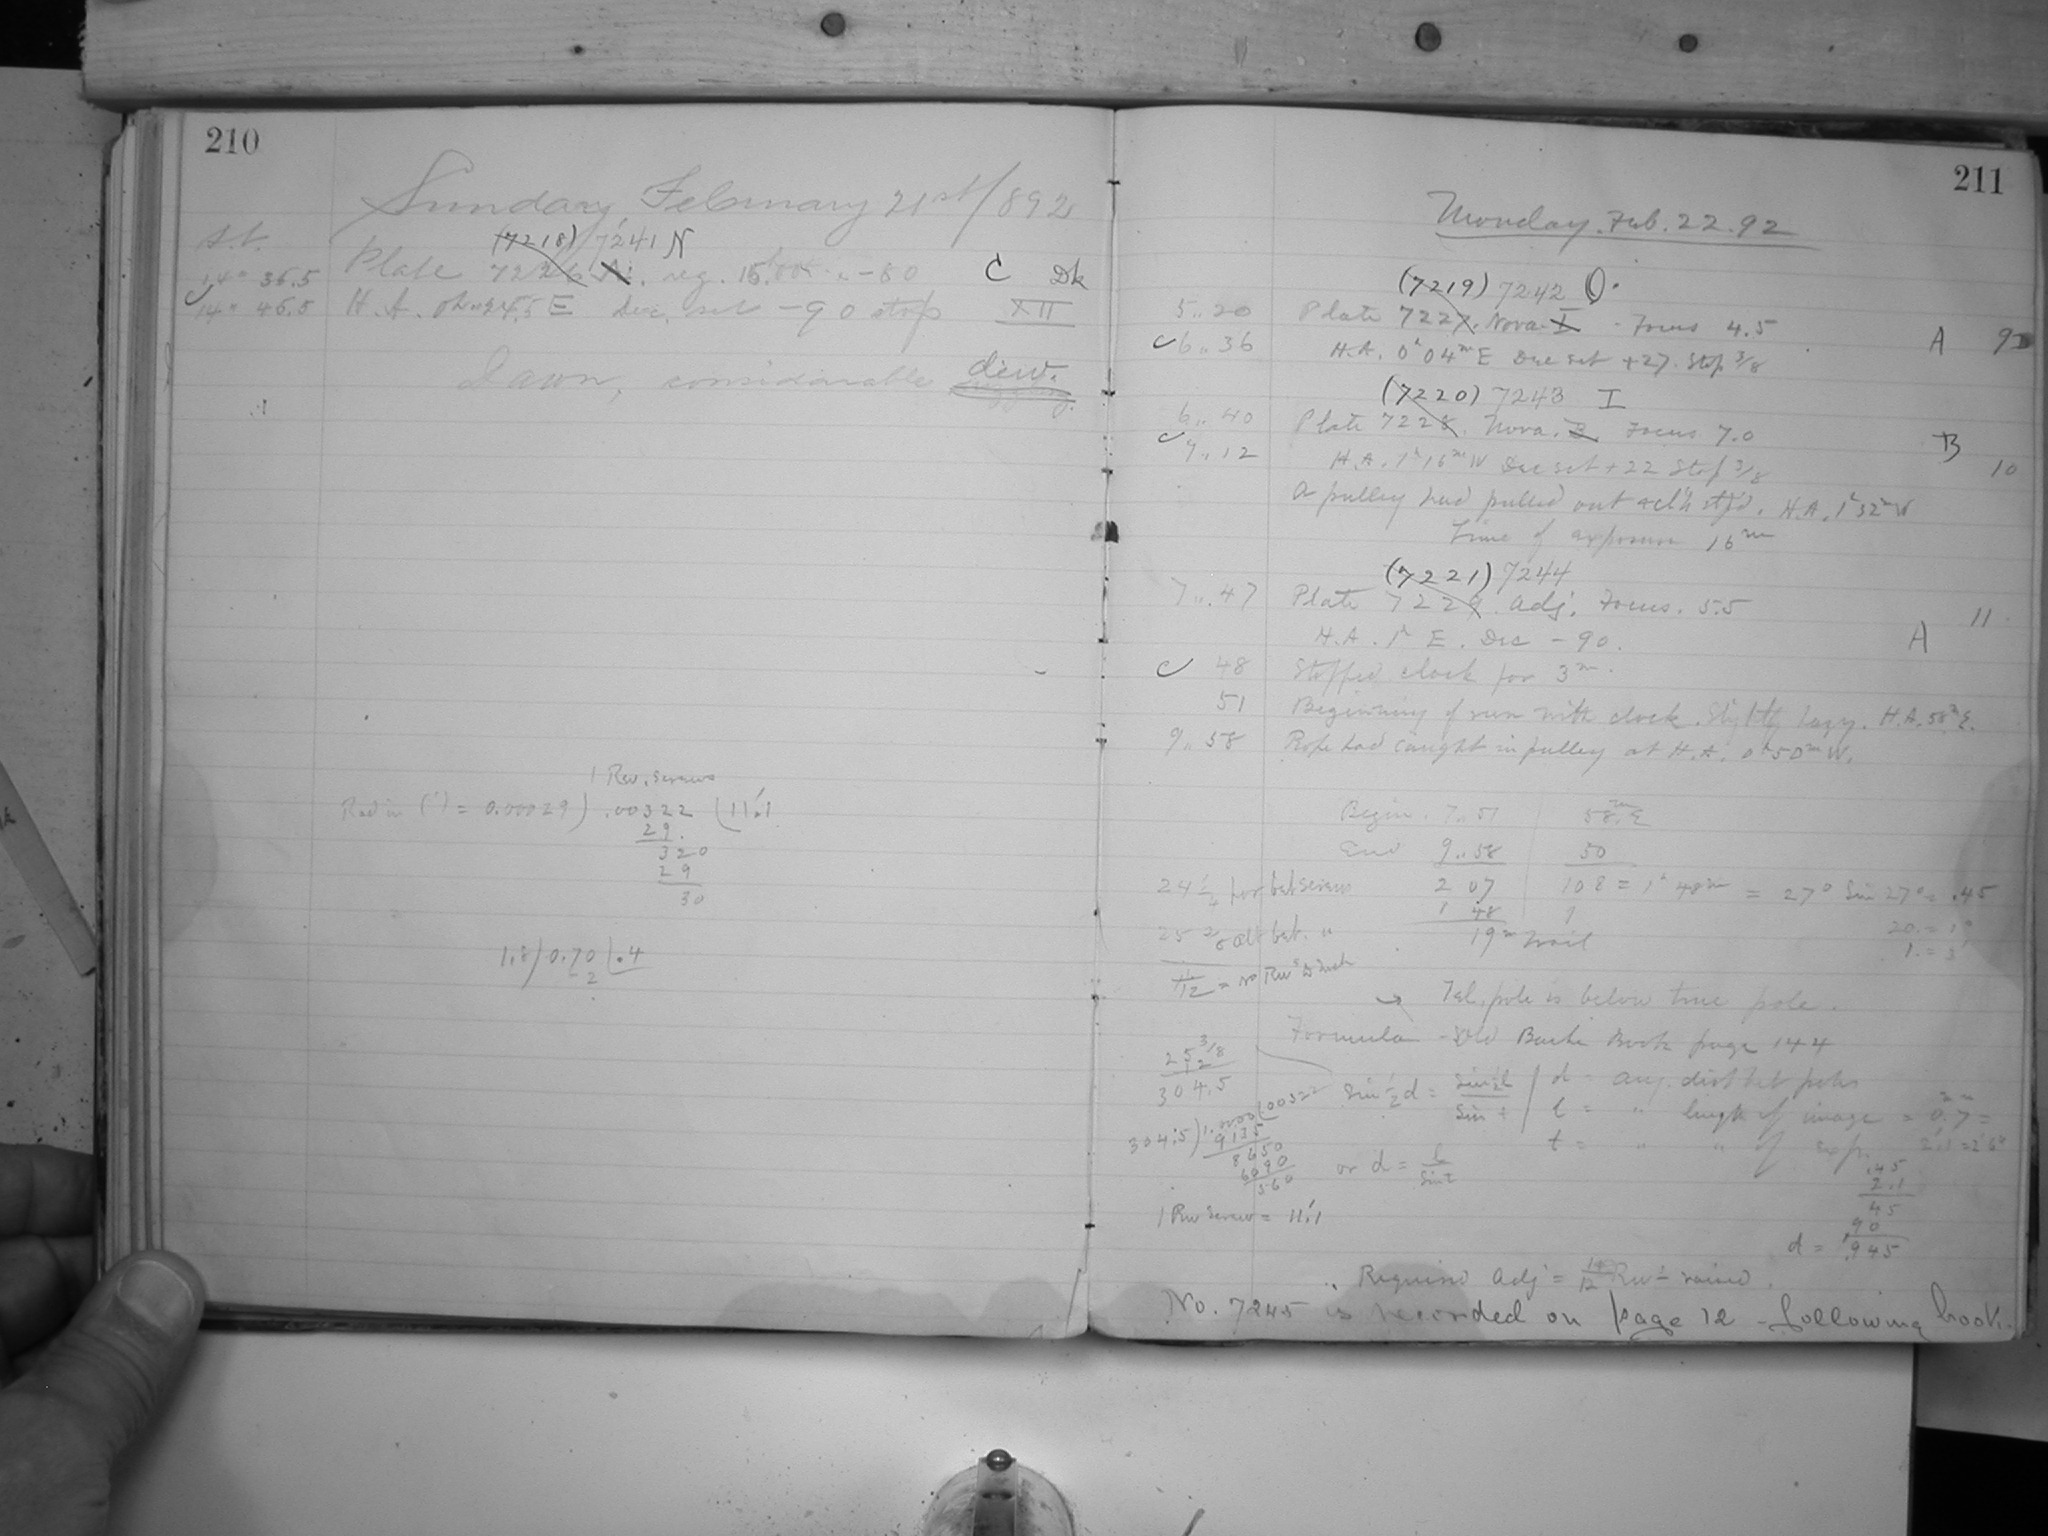 210
Sunday, February 21st 1892
S.T.
(7218) 7241 N
14 " 36.5 Plate 7226 reg. -80 C Dk
14 " 46.5 H.A. E Dec. set -90 stop XII
Dawn, considerable dew.
1 Rev. screws
Rad in (') = 0.00029) .00322 (11.'1
29
320
29
30
1.8) 0.70 (.4
2
211
Monday. Feb. 22. 92
(7219) 7242 O.
5..20 Plate 7227. Nova. I. Focus 4.5
6..36 H.A. 0h 04m E Dec set +27. Stop 3/8 A 9
(7220) 7243 I
6..40 Plate 7228. Nova. 2 Focus 7.0
9..12 H.A. 1h 16m W Dec set +22 Stop 3/8 B 10
A pulley had pulled out & cl'k stp'd. H.A. 1h 32m W
Time of exposure 16m
(7221) 7244
7..47 Plate 7229. Adj. Focus. 5.5 11
H.A. 1h E. Dec -90. A
48 Stopped clock for 3m.
51 Beginning of run with clock. Slightly hazy. H.A. 58m E.
9..58 Rope had caught in pulley at H.A. 0h 50m W.
Begin. 7..51 58m E
End 9..58 50
24 1/4 bet screws 2 07 108 = 1h 48m = 27° Sin 27° = .45
1 48
25 bet. " 19m trail 20. = 1°
1. = 3'
12 = No Rev's to inch
→ Tel. pole is below true pole.
Formula - Old Bache Book page 144
25 3/8
12
304.5
Sin 1/2 d = Sin 1/2 l / Sin t d = ang. dist bet poles
l = " length of image = 0.7 =
t = " " of exp. 2.'1
304.5) 1.0000 (.00322
9135
8650
6090
560
or d = l / Sin t
.45
2.1
45
90
d = .945
1 Rev screw = 11.'1
∴ Required Adj = 1/12 Rev - raised.
No. 7245 is recorded on page 12 - following book.